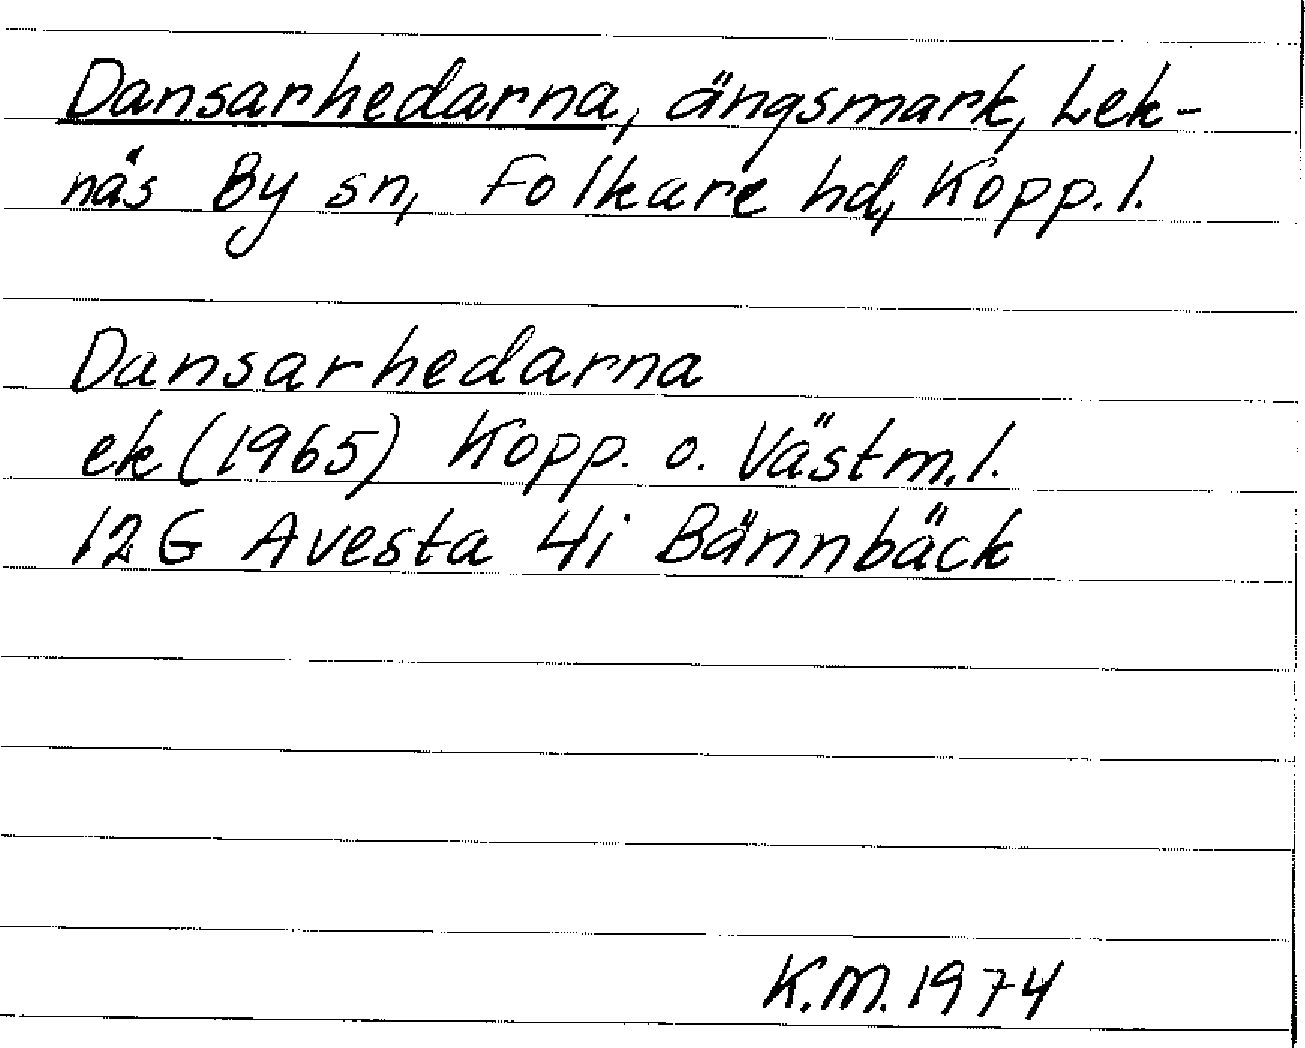 Dansarhedarna, ängsmark, Lek-
näs By sn, Folkare hd, Kopp.l.
Dansarhedarna
ek (1965) Kopp. o. Västm.l.
12G Avesta 4i Bännbäck
K.M. 1974